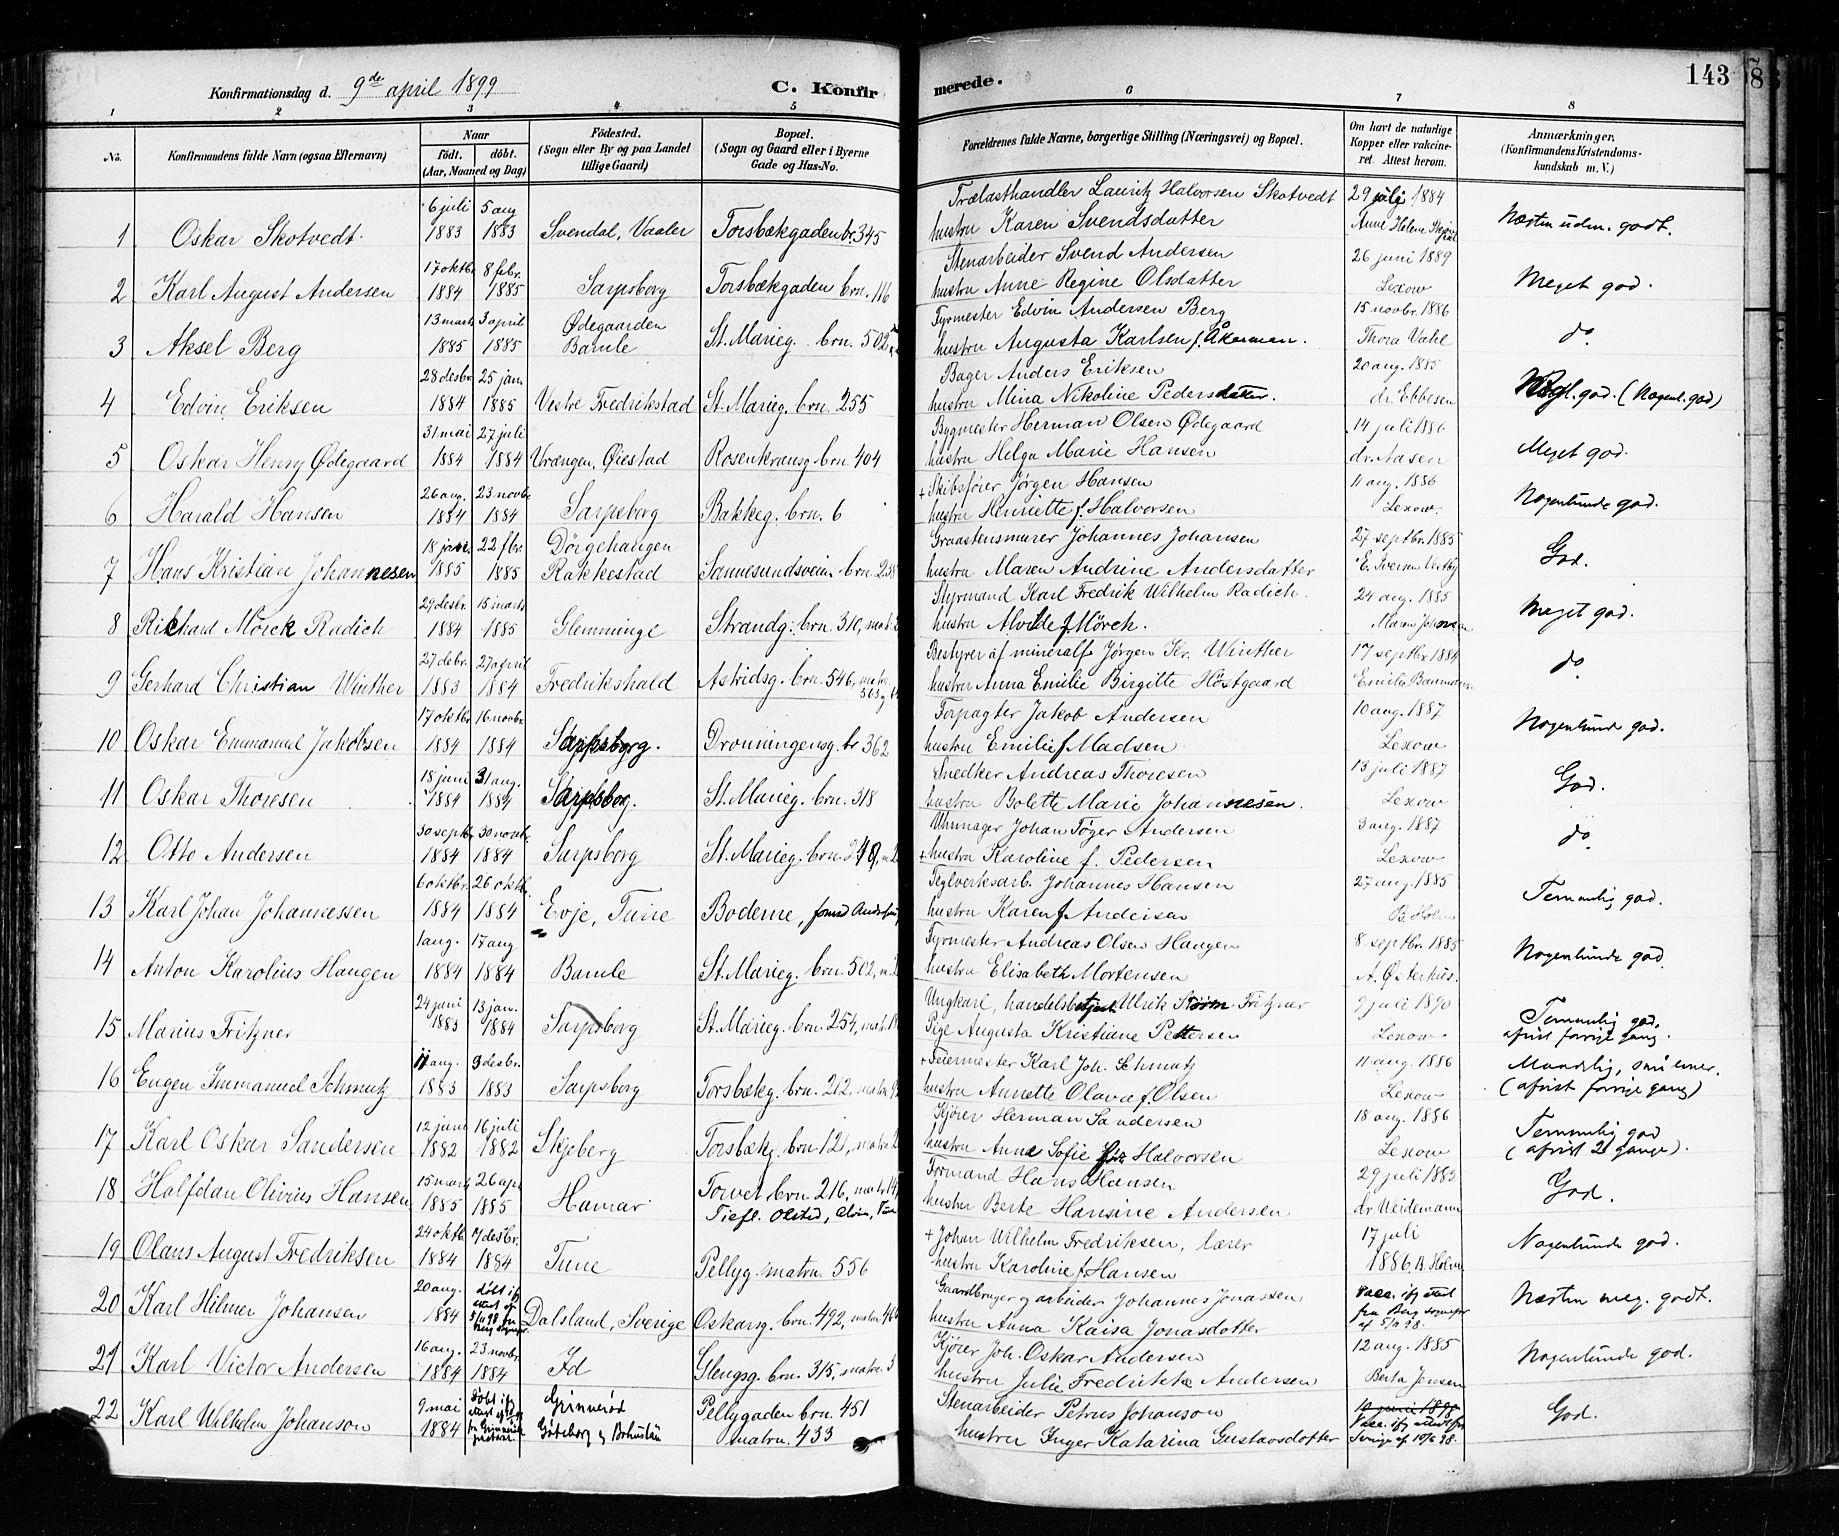 Konfirmationsdag d. 9de april 1899 C. Konfirmerede. 143
1 2 3 4 5 6 7 8
No. Konfirmandens fulde Navn (ogsaa Efternavn) Naar født. døbt. (Aar, Maaned og Dag) Fødested. (Sogn eller By og paa Landet tillige Gaard) Bopæl. (Sogn og Gaard eller i Byerne Gade og Hus-No. Forældrenes fulde Navne, borgerlige Stilling (Næringsvei) og Bopæl. Om havt de naturlige Kopper eller vakcineret. Attest herom. Anmærkninger. (Konfirmandens Kristendomskundskab m. V.)
6 juli 5 aug Trælasthandler Lauritz Halvorsen Skotvedt 29 juli 1884
1 Oskar Skotvedt 1883 1883 Svendal, Vaaler Torsbækgaden br. 345 hustru Karen Svendsdatter Anne Helene Næsten udm. godt.
17 oktbr. 8 febr. Stenarbeider Svend Andersen 26 juni 1889
2 Karl August Andersen 1884 1885 Sarpsborg Torsbækgaden brn. 116 hustru Anne Regine Olsdatter Lexow Meget god.
13 marts 3 april Ødegaarden Fyrmester Edvin Andersen Berg 15 novbr. 1886
3 Aksel Berg 1885 1885 Bamle St. Marieg. brn. 502 hustru Augusta Karlsen f. Åkerman. Thora Vahl do
28 desbr. 25 jan. Bager Anders Eriksen 20 aug. 1885
4 Edvin Eriksen 1884 1885 Vestre Fredrikstad St. Marieg. brn. 255 hustru Mina Nikoline Pedersdatter. dr. Ebbesen god. (Nogenl. god)
31 mai 27 juli Bygmester Herman Olsen Ødegaard 14 juli 1886
5 Oskar Henry Ødegaard 1884 1884 Vrængen, Øiestad Rosenkransg. brn. 404 hustru Helga Marie Hansen dr. Aasen Meget god.
26 aug. 23 novbr. + Skibsfører Jørgen Hansen 11 aug. 1886
6 Harald Hansen 1884 1884 Sarpsborg Bakkeg. brn. 6 hustru Henriette f. Halvorsen Lexow. Nogenlunde god.
18 janr. 22 fbr. Dørgehaugen Graastensmurer Johannes Johansen 27 septbr. 1885
7 Hans Kristian Johannesen 1885 1885 Rakkestad Sannesundsvein. brn. 238 hustru Maren Andrine Andersdatter E. Iversen God.
29 desbr. 15 marts Styrmand Karl Fredrik Wilhelm Radich 24 aug. 1885
8 Rikhard Mörck Radich 1884 1885 Glemminge Strandg. brn. 310, mat. hustru Alvilde f. Mörch. Maren Johnsen Meget god.
27 debr. 27 april Bestyrer af mineralf. Jørgen Kr. Winther 17 septbr 1884
9 Gerhard Christian Winther 1883 1884 Fredrikshald Astridsg. brn. 546, matr. 563 hustru Anna Emilie Birgitte Høstgaard Emilie do
17 oktbr. 16 novbr. Forpagter Jakob Andersen 10 aug. 1887
10 Oskar Emmanuel Jakobsen 1884 1884 Sarpsborg. Dronningensg. br 362 hustru Emilie f. Madsen Lexow Nogenlunde god.
18 juni 31 aug. Snedker Andreas Thoresen 13 juli 1887
11 Oskar Thoresen 1884 1884 Sarpsborg. St. Marieg. brn. 318 hustru Bolette Marie Johannesen. Lexow God.
30 septbr. 30 novbr. Uhrmager Johan Töger Andersen 3 aug. 1887
12 Otto Andersen 1884 1884 Sarpsborg St. Marieg. brn. + hustru Karoline f. Pedersen Lexow do
6 oktbr. 26 oktbr. Teglverksarb. Johannes Hansen 27 aug. 1885
13 Karl Johan Johannessen 1884 1884 Evje, Tune Boderne, hustru Karen f. Andersen B. Holm Temmelig god.
1 aug. 17 aug Fyrmester Andreas Olsen Haugen 8 septbr. 1885
14 Anton Karolius Haugen 1884 1884 Bamle St. Marieg. brn. 502, hustru Elisabeth Mortensen A. Österhus. Nogenlunde god.
24 juni 13 jan. Ungkarl, handelsbetjent Ulrik Störm Fritzner 9 juli 1890
15 Marius Fritzner 1883 1884 Sarpsborg St. Marieg. brn. 254, mat. Pige Augusta Kristiane Pettersen Lexow Temmelig god, afvist forrige gang.
11 aug. 9 desbr. + Feiermester Karl Joh. Schmutz 11 aug 1886
16 Eugen Immanuel Schmutz 1883 1883 Sarpsborg Torsbækg. brn. 212, matrn. hustru Annette Olava f. Olsen Lexow Maadelig, (afvist forrige gang)
12 juni 16 juli Kjører Herman Sandersen 18 aug. 1886
17 Karl Oskar Sandersen 1882 1882 Skjeberg Torsbækg. brn 121, matrn. hustru Anne Sofie Halvorsen Lexow Temmelig god (afvist 2 gange).
15 marts 26 apr. Formand Hans Hansen 29 juli 1885
18 Halfdan Olivius Hansen 1885 1885 Hamar Torvet brn. 216, matr. Tiefl. Olsted, hustru Berte Hansine Andersen dr. Weidemann God.
24 oktbr. 7 desbr. + Johan Wilhelm Fredriksen, lærer 17 juli
19 Olaus August Fredriksen 1884 1884 Tune Pellyg. matrn. 556 hustru Karoline f. Hansen 1886. B. Holm Nogenlunde god.
20 aug. døbt ifg. attest af 5/11 98 Gaardbruger og arbeider Johannes Jonassen Vacc. ifg attest
20 Karl Hilmer Johansen 1884 Dalsland, Sverige Oskarsg. brn. 492, matrn. hustru Anna Kaisa Jonasdotter fra Berg af 5/11 98. Næsten meg. godt.
16 aug. 23 novbr. Kjører Joh. Oskar Andersen 12 aug. 1885
21 Karl Victor Andersen 1884 1884 Id Glengsg. brn. 315, matrn. hustru Julie Fredrikke Andersen Berta Jensen Nogenlunde god.
9 mai Døbt ifg. attest Grinneröd Stenarbeider Petrus Johanson
22 Karl Wilhelm Johanson 1884 Göteborg og Bohuslän Pellygaden brn. 451 matrn. 433 hustru Inger Katarina Gustavsdotter Vacc. ifg attest fra Sverige af 10/6 98. God.